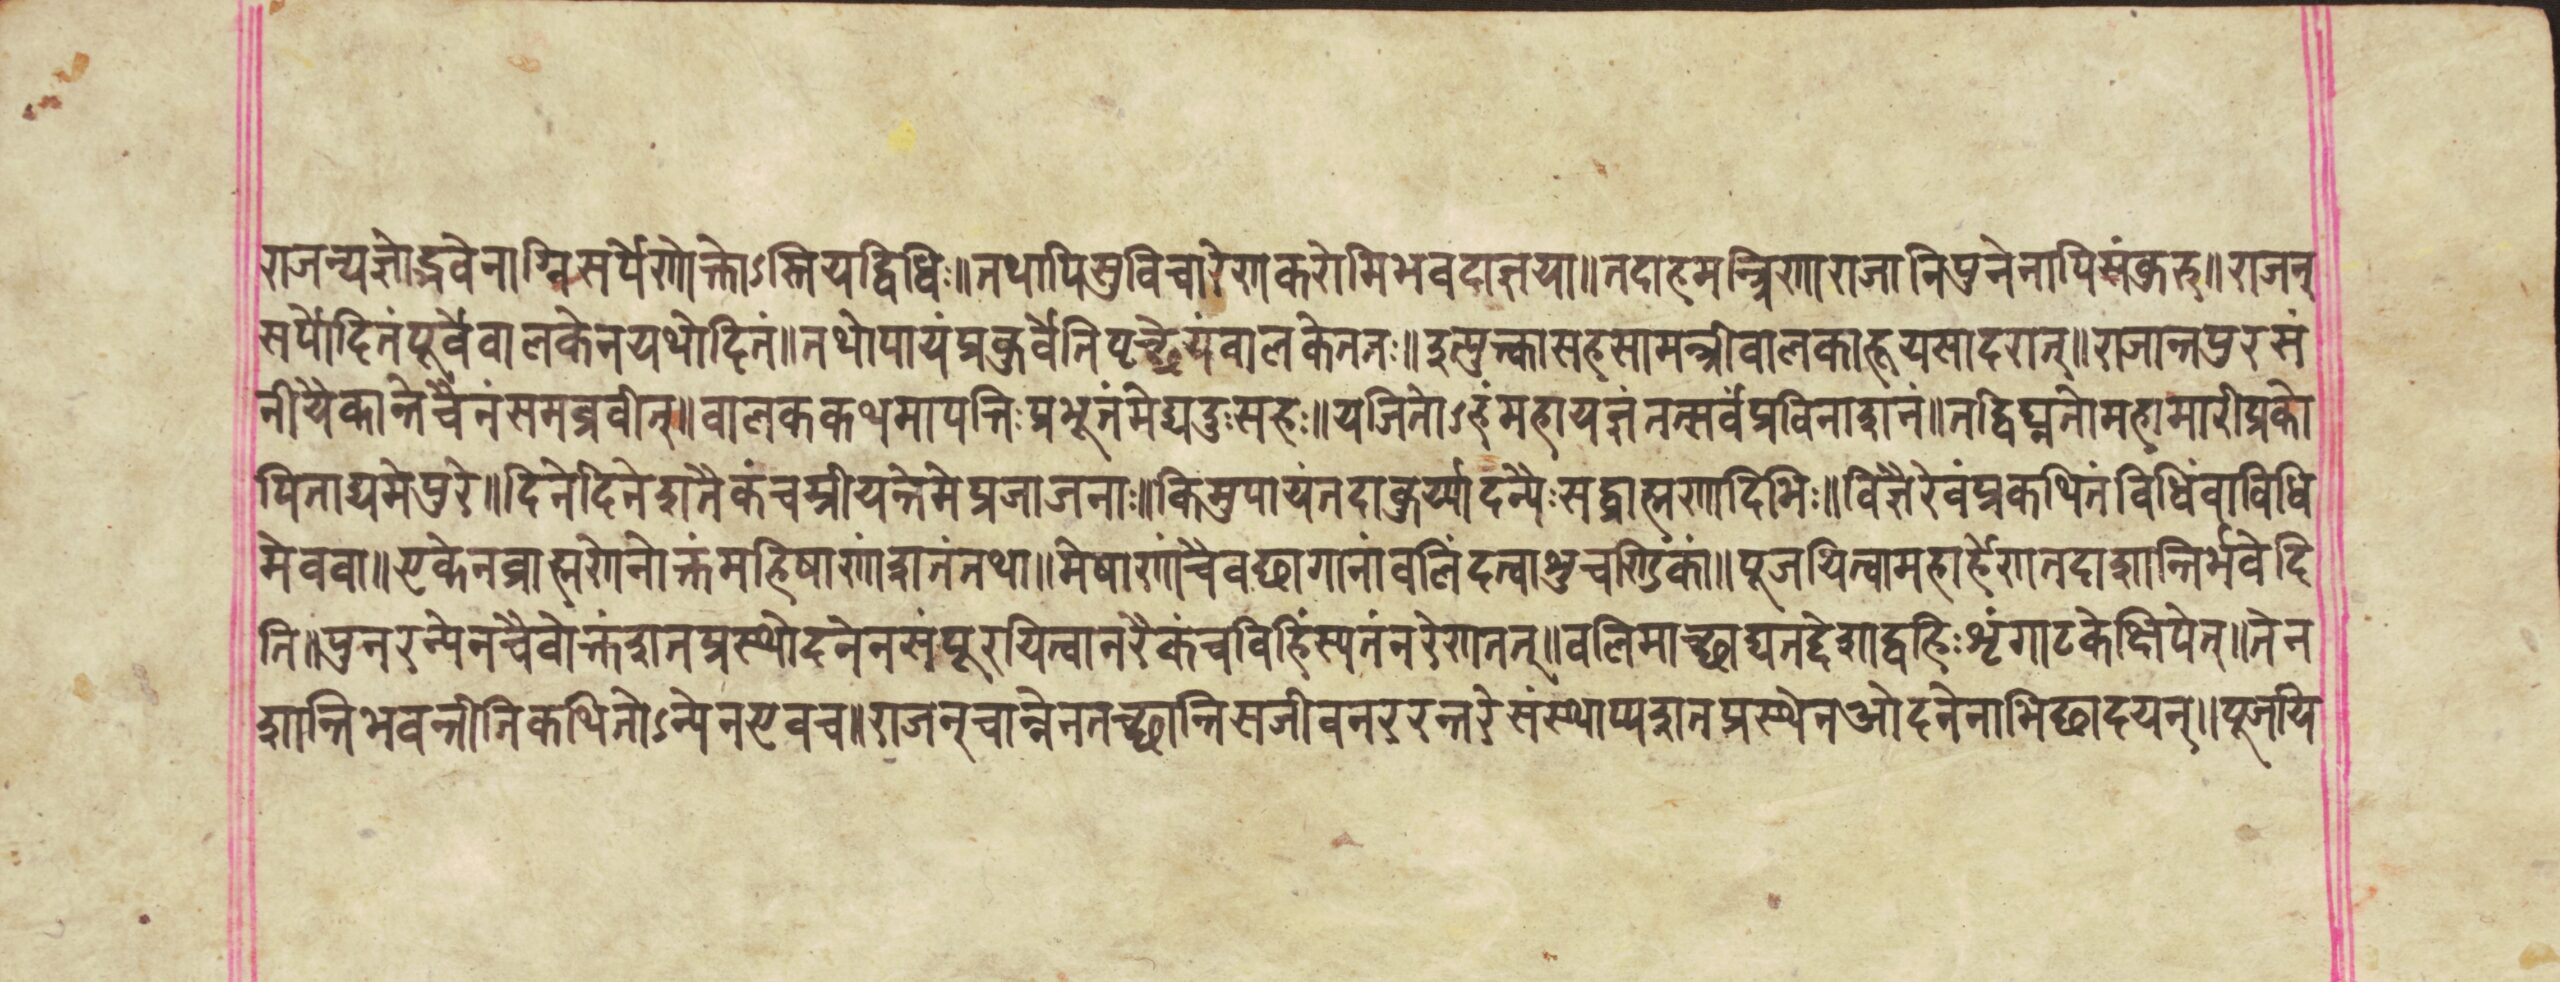 राजन्यज्ञोद्भवेनाग्निसर्पेणोक्तोऽस्तियद्विधिः॥तथापिसुविचारेणकरोमिभवदाज्ञया॥तदाहमन्त्रिणाराजानिपुनेनापिसंकुरु॥राजन्
सर्पोदितंपूर्वेवालकेनयथोदितं॥तथोपायंप्रकुर्वेतिपृच्छेयंवालकेततः॥इत्युक्त्वासहसामन्त्रीवालकाहूयसादरात्॥राजान्तपुरसं
नीयैकान्तेचैनंसमब्रवीत्॥वालककथमापत्तिःप्रभूतंमेद्यदुःसहः॥यजितोऽहंमहायज्ञंतत्सर्वंप्रविनाशनं॥तद्विघ्नतोमहामारीप्रको
पिताद्यमेपुरे॥दिनेदिनेशतैकंचम्रीयन्तेमेप्रजाजनाः॥किमुपायंतदाकुर्य्यादन्यैःसद्ब्राह्मणादिभिः॥विज्ञैरेवंप्रकथितंविधिंवाविधि
मेववा॥एकेनब्राह्मणेनोक्तंमहिषाणांशतंतथा॥मेषाणांचैवछागानांवलिंदत्वाशुचण्डिकां॥पूजयित्वामहार्हेणतदाशान्तिर्भवेदि
ति॥पुनरन्येनचैवोक्तंशतप्रस्थोदनेनसंपूरयित्वानरैकंचविहिंस्यतंनरेणतत्॥वलिमाच्छाद्यतद्देशाद्वहिःशृंगाटकेक्षिपेत्॥तेन
शान्तिभवन्तीतिकथितोऽन्येनएवच॥राजन्चान्नेनतच्छान्तिसजीवनररन्तरेसंस्थाप्यशतप्रस्थेनओदनेनाभिछादयन्॥पूजयि